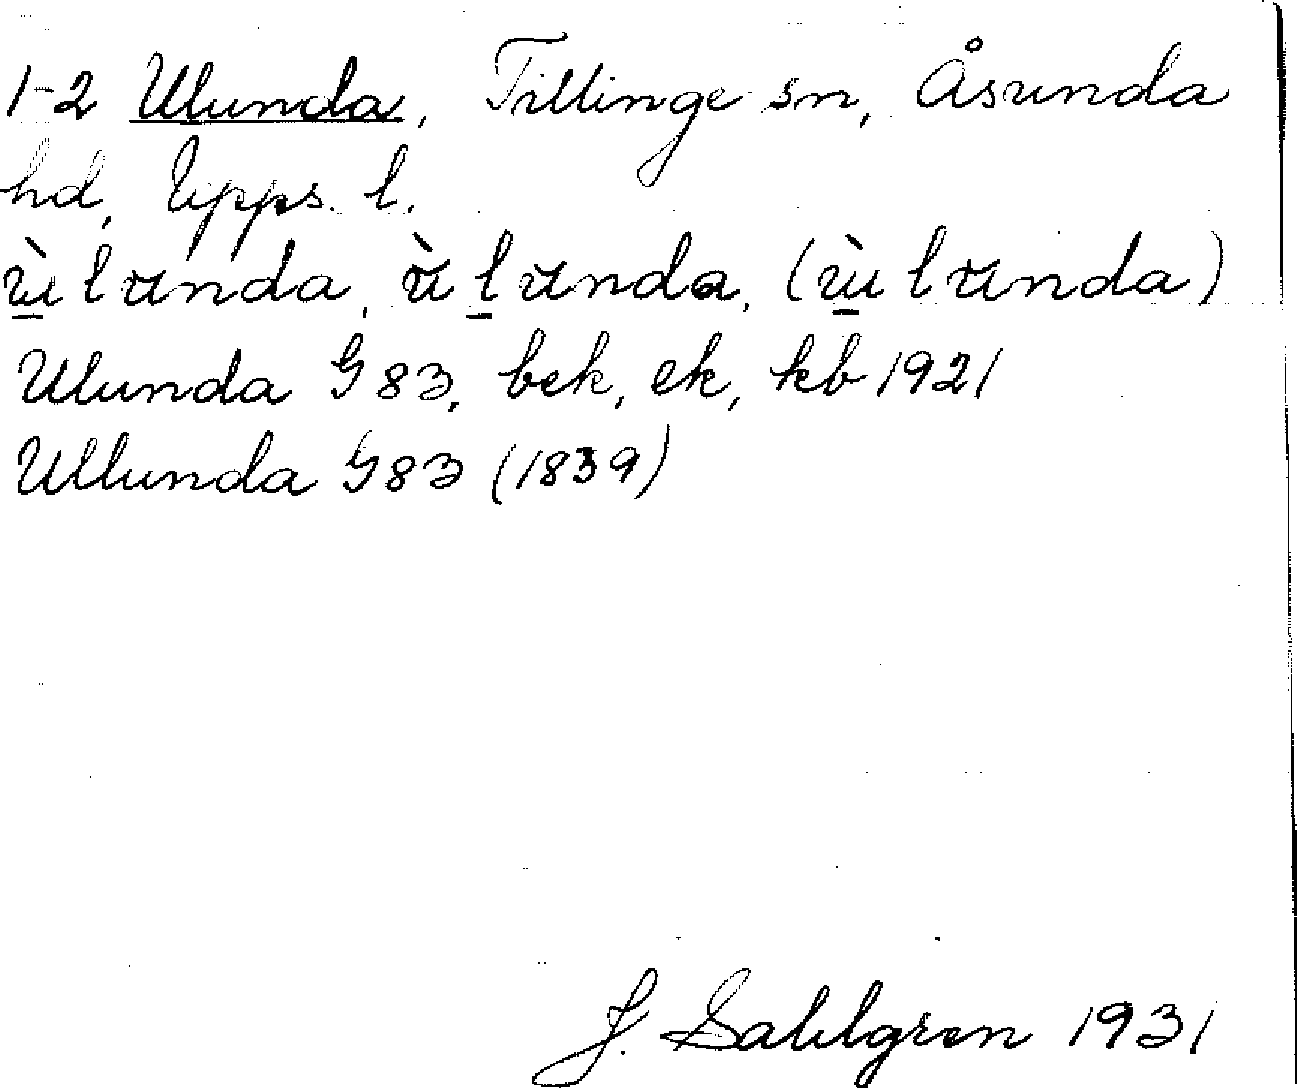 1-2 Ulunda, Tillinge sn, Åsunda
hd, Upps. l.
ɯ̲̀lunda, ùl̲unda, (ɯ̲̀lunda)
Ulunda G83, bek, ek, kb 1921
Ullunda G83 (1839)
J. Sahlgren 1931